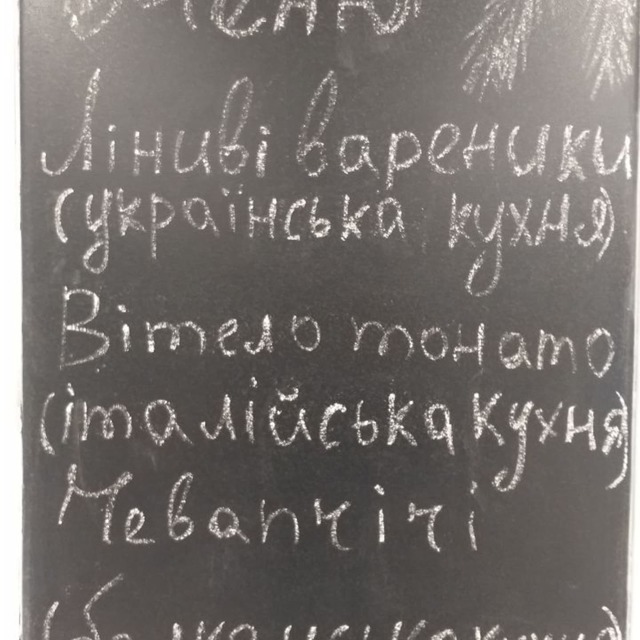 Ліниві вареники
(українська кухня)
Вітело тонато
(італійська кухня)
Чевапчічі